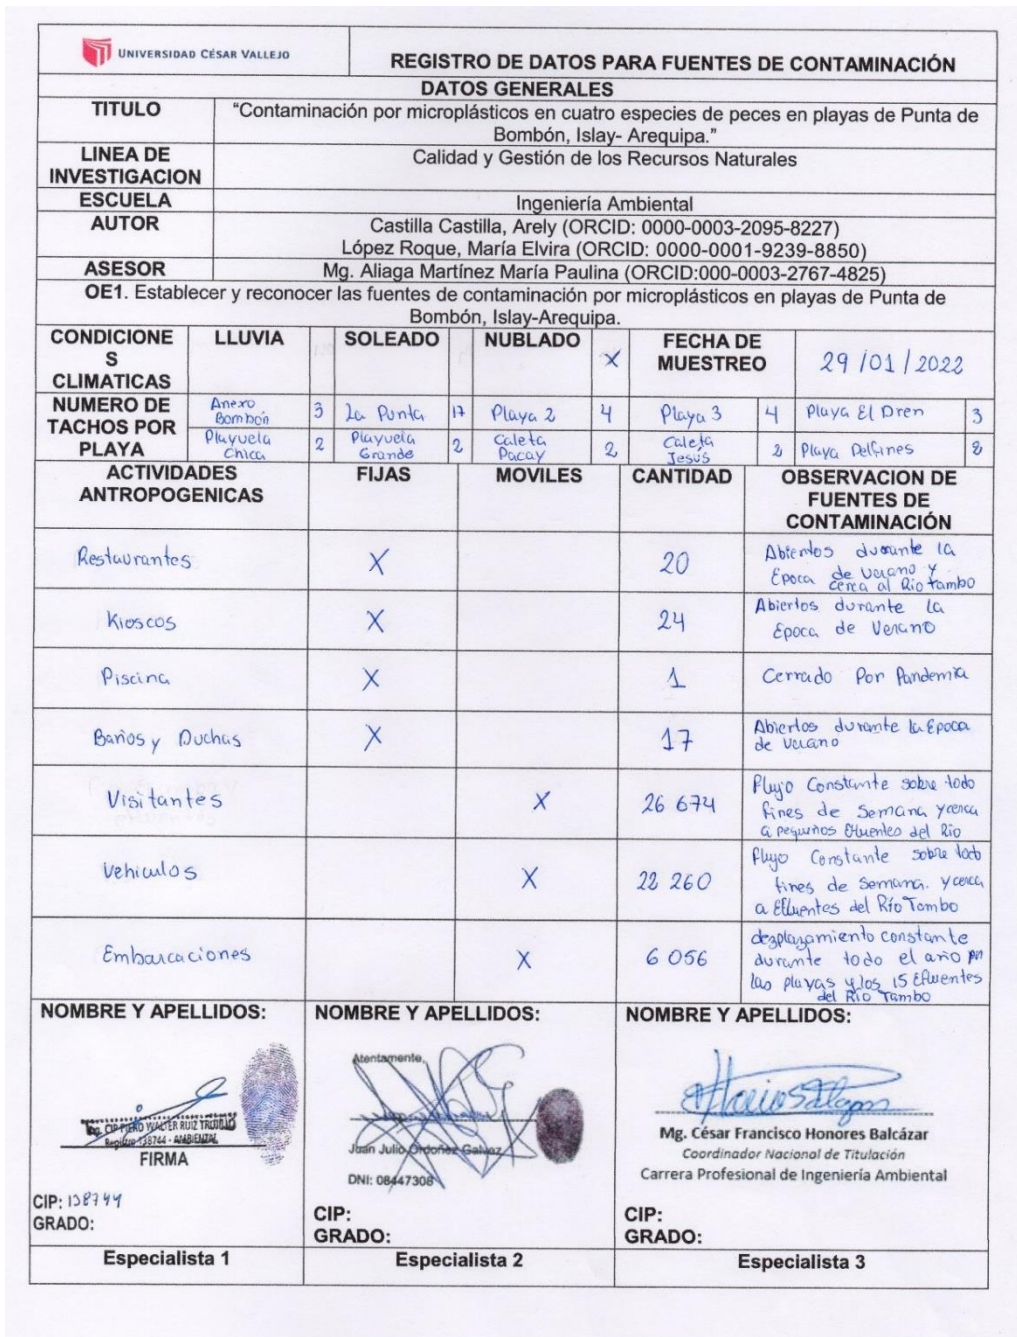 UNIVERSIDAD CÉSAR VALLEJO
REGISTRO DE DATOS PARA FUENTES DE CONTAMINACIÓN
DATOS GENERALES
TITULO
“Contaminación por microplásticos en cuatro especies de peces en playas de Punta de
Bombón, Islay- Arequipa.”
LINEA DE
INVESTIGACION
Calidad y Gestión de los Recursos Naturales
ESCUELA
Ingeniería Ambiental
AUTOR
Castilla Castilla, Arely (ORCID: 0000-0003-2095-8227)
López Roque, María Elvira (ORCID: 0000-0001-9239-8850)
ASESOR
Mg. Aliaga Martínez María Paulina (ORCID:000-0003-2767-4825)
OE1. Establecer y reconocer las fuentes de contaminación por microplásticos en playas de Punta de
Bombón, Islay-Arequipa.
CONDICIONE
S
CLIMATICAS
LLUVIA
SOLEADO
NUBLADO
X
FECHA DE
MUESTREO
29/01/2022
NUMERO DE
TACHOS POR
PLAYA
Anexo
Bombón
3
La Punta
17
Playa 2
4
Playa 3
4
Playa El Dren
3
Playuela
Chica
2
Playuela
Grande
2
Caleta
Pacay
2
Caleta
Jesús
2
Playa Delfines
2
ACTIVIDADES
ANTROPOGENICAS
FIJAS
MOVILES
CANTIDAD
OBSERVACION DE
FUENTES DE
CONTAMINACIÓN
Restaurantes
X
20
Abiertos durante la
Epoca de Verano y
cerca al Rio tambo
Kioscos
X
24
Abiertos durante la
Epoca de Verano
Piscina
X
1
Cerrado Por Pandemia
Baños y Duchas
X
17
Abiertos durante la Epoca
de Verano
Visitantes
X
26 674
flujo Constante sobre todo
fines de Semana y cerca
a pequeños Efluentes del Rio
Vehiculos
X
22 260
flujo Constante sobre todo
fines de Semana. y cerca
a Efluentes del Río Tambo
Embarcaciones
X
6 056
desplazamiento constante
durante todo el año en
las playas y los 15 Efluentes
del Río Tambo
NOMBRE Y APELLIDOS:
Ing. CIP PIERO WALTER RUIZ TRUJILLO
Registro 138744 - AMBIENTAL
FIRMA
CIP: 138744
GRADO:
NOMBRE Y APELLIDOS:
Atentamente,
Juan Julio Ordoñez Galvez
DNI: 08447308
CIP:
GRADO:
NOMBRE Y APELLIDOS:
Mg. César Francisco Honores Balcázar
Coordinador Nacional de Titulación
Carrera Profesional de Ingeniería Ambiental
CIP:
GRADO:
Especialista 1
Especialista 2
Especialista 3